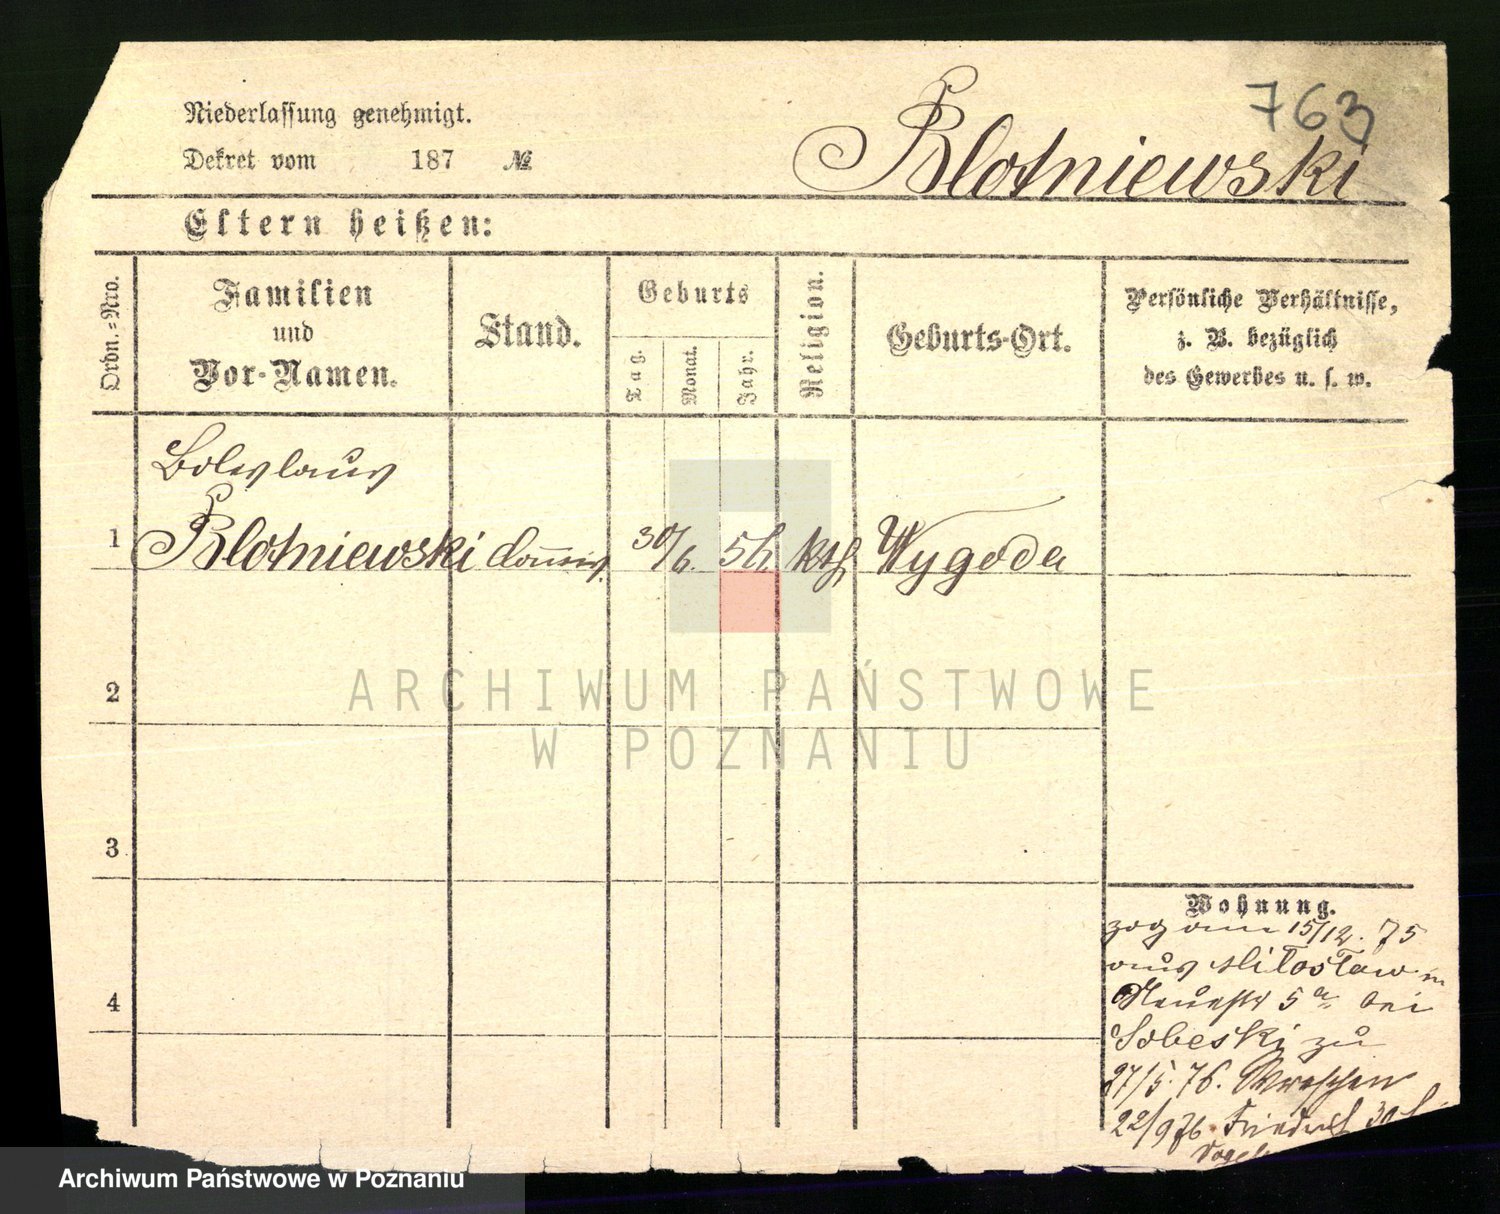 763
Niederlassung genehmigt.
Dekret vom 187 №
Blotniewski
Eltern heißen:
Ordn.=Nro.
Familien
und
Vor-Namen.
Stand.
Geburts
Tag.
Monat.
Jahr.
Religion.
Geburts-Ort.
Persönliche Verhältnisse,
z. B. bezüglich
des Gewerbes u. s. w.
Boleslaus
1 Blotniewski 30/6. kth Wygoda
2
3
4
Wohnung.
zog am 15/12. 75
aus Miloslaw
Neuestr 5 bei
Sobeski zu
27/5. 76. Wreschen
22/9 76. Friedrichst 30
ARCHIWUM PAŃSTWOWE
W POZNANIU
Archiwum Państwowe w Poznaniu